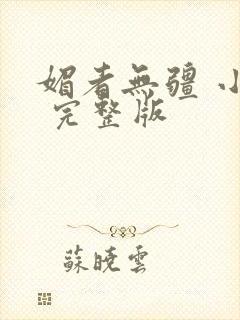 媚者無疆 小
完整版
蘇曉雲